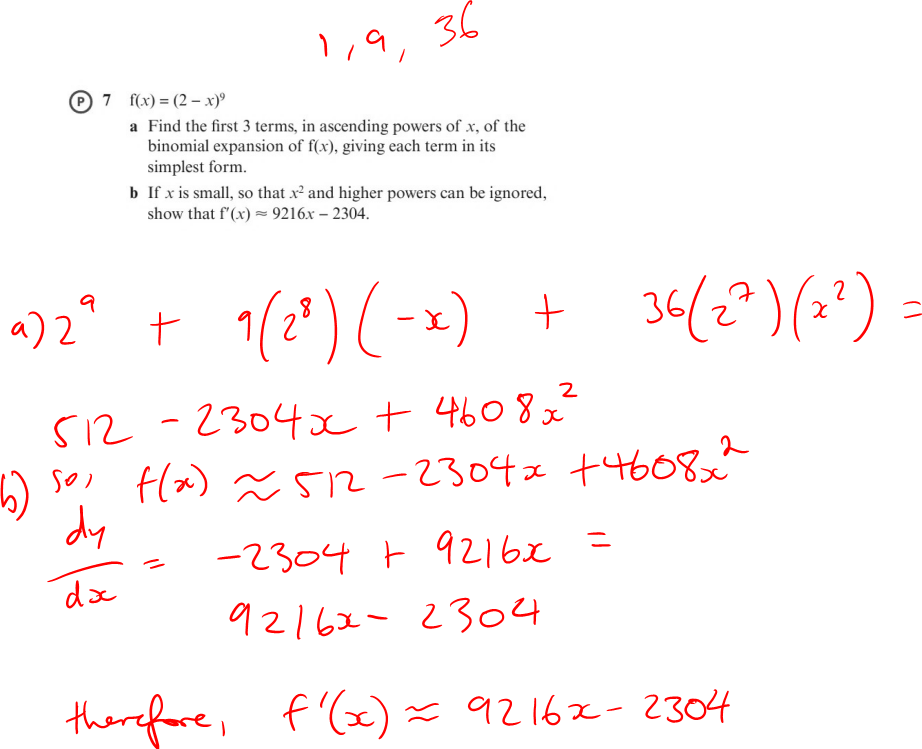 1, 9, 36
P 7 f(x) = (2 – x)⁹
a Find the first 3 terms, in ascending powers of x, of the
binomial expansion of f(x), giving each term in its
simplest form.
b If x is small, so that x² and higher powers can be ignored,
show that f′(x) ≈ 9216x – 2304.
a) 2⁹ + 9(2⁸)(-x) + 36(2⁷)(x²) =
512 - 2304x + 4608x²
b) so, f(x) ≈ 512 - 2304x + 4608x²
dy/dx = -2304 + 9216x =
9216x - 2304
therefore, f'(x) ≈ 9216x - 2304